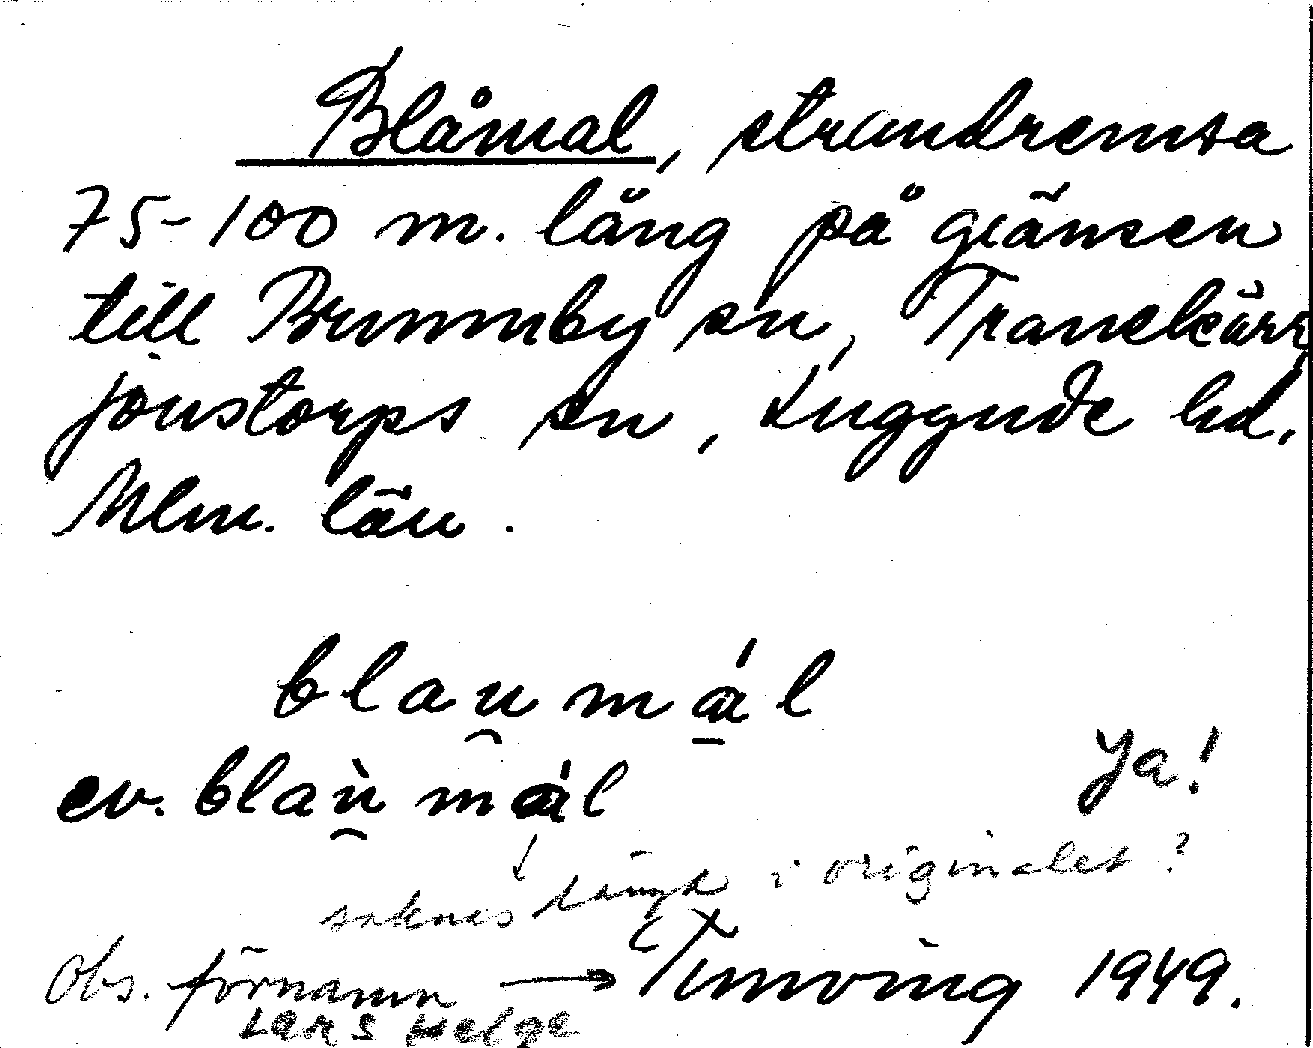 Blåmal, strandremsa
75-100 m. lång på gränsen
till Brunnby sn, Tranekärr,
Jonstorps sn, Luggude hd.
Mlm. län.
blau̯ mál
ev. blaù̯ mál
Ja!
↓
saknas längd i originalet?
Obs. förnamn → Timving 1949.
Lars Helge